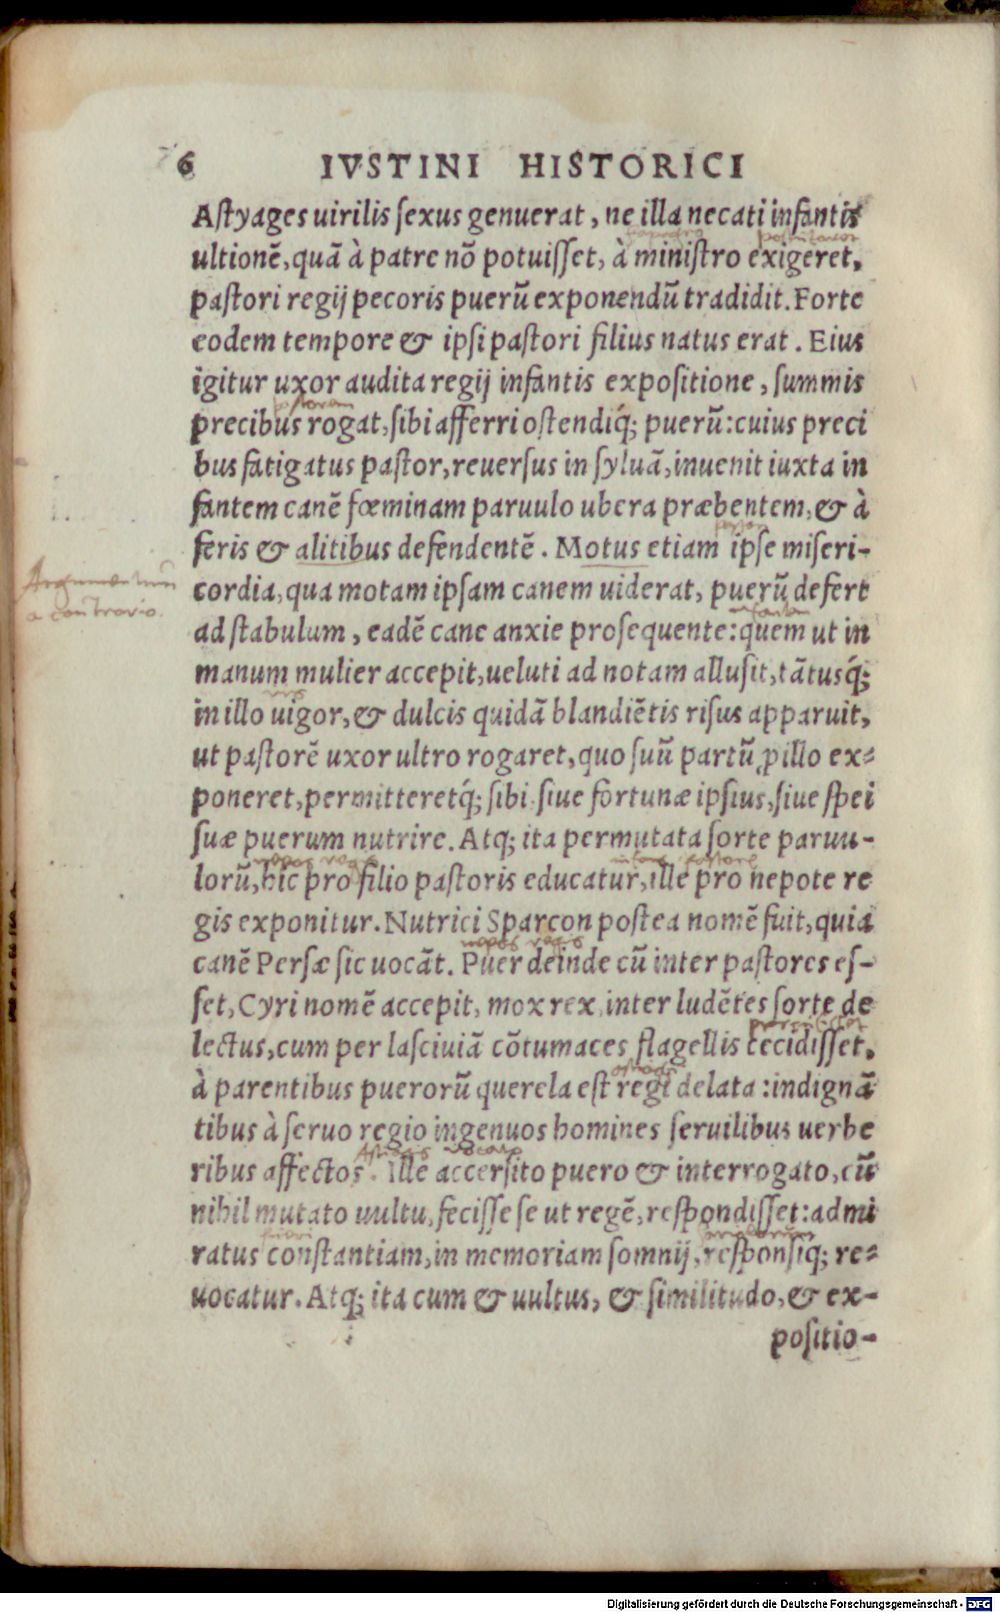 6 IVSTINI HISTORICI
Astyages uirilis sexus genuerat, ne illa necati infantis
ultionē, quā à patre nō potuisset, à ministro exigeret,
pastori regij pecoris puerū exponendū tradidit. Forte
eodem tempore & ipsi pastori filius natus erat. Eius
igitur uxor audita regij infantis expositione, summis
pastorem
precibus rogat, sibi afferri ostendiq́; puerū: cuius preci
bus fatigatus pastor, reuersus in syluā, inuenit iuxta in
fantem canē fœminam paruulo ubera præbentem, & à
pastor
feris & alitibus defendentē. Motus etiam ipse miseri-
Argumentum
cordia, qua motam ipsam canem uiderat, puerū defert
a contrario.
infantem
ad stabulum, eadē cane anxie prosequente: quem ut in
manum mulier accepit, ueluti ad notam allusit, tātusq́;
in illo uigor, & dulcis quidā blandiētis risus apparuit,
ut pastorē uxor ultro rogaret, quo suū partū ꝓ illo ex-
poneret, permitteretq́; sibi siue fortunæ ipsius, siue spei
suæ puerum nutrire. Atq; ita permutata sorte paruu-
nepos regis infans pastoris
lorū, hic pro filio pastoris educatur, ille pro nepote re
gis exponitur. Nutrici Sparcon postea nomē fuit, quia
nepos regis
canē Persæ sic uocāt. Puer deinde cū inter pastores es-
set, Cyri nomē accepit, mox rex inter ludētes sorte de
lectus, cum per lasciuiā cōtumaces flagellis cecidisset,
à parentibus puerorū querela est regi delata: indignā
tibus à seruo regio ingenuos homines seruilibus uerbe
Astiages vocato
ribus affectos. Ille accersito puero & interrogato, cū
nihil mutato uultu, fecisse se ut regē, respondisset: admi
pueri
ratus constantiam, in memoriam somnij, responsiq; re-
uocatur. Atq; ita cum & uultus, & similitudo, & ex-
positio-
Digitalisierung gefördert durch die Deutsche Forschungsgemeinschaft - DFG